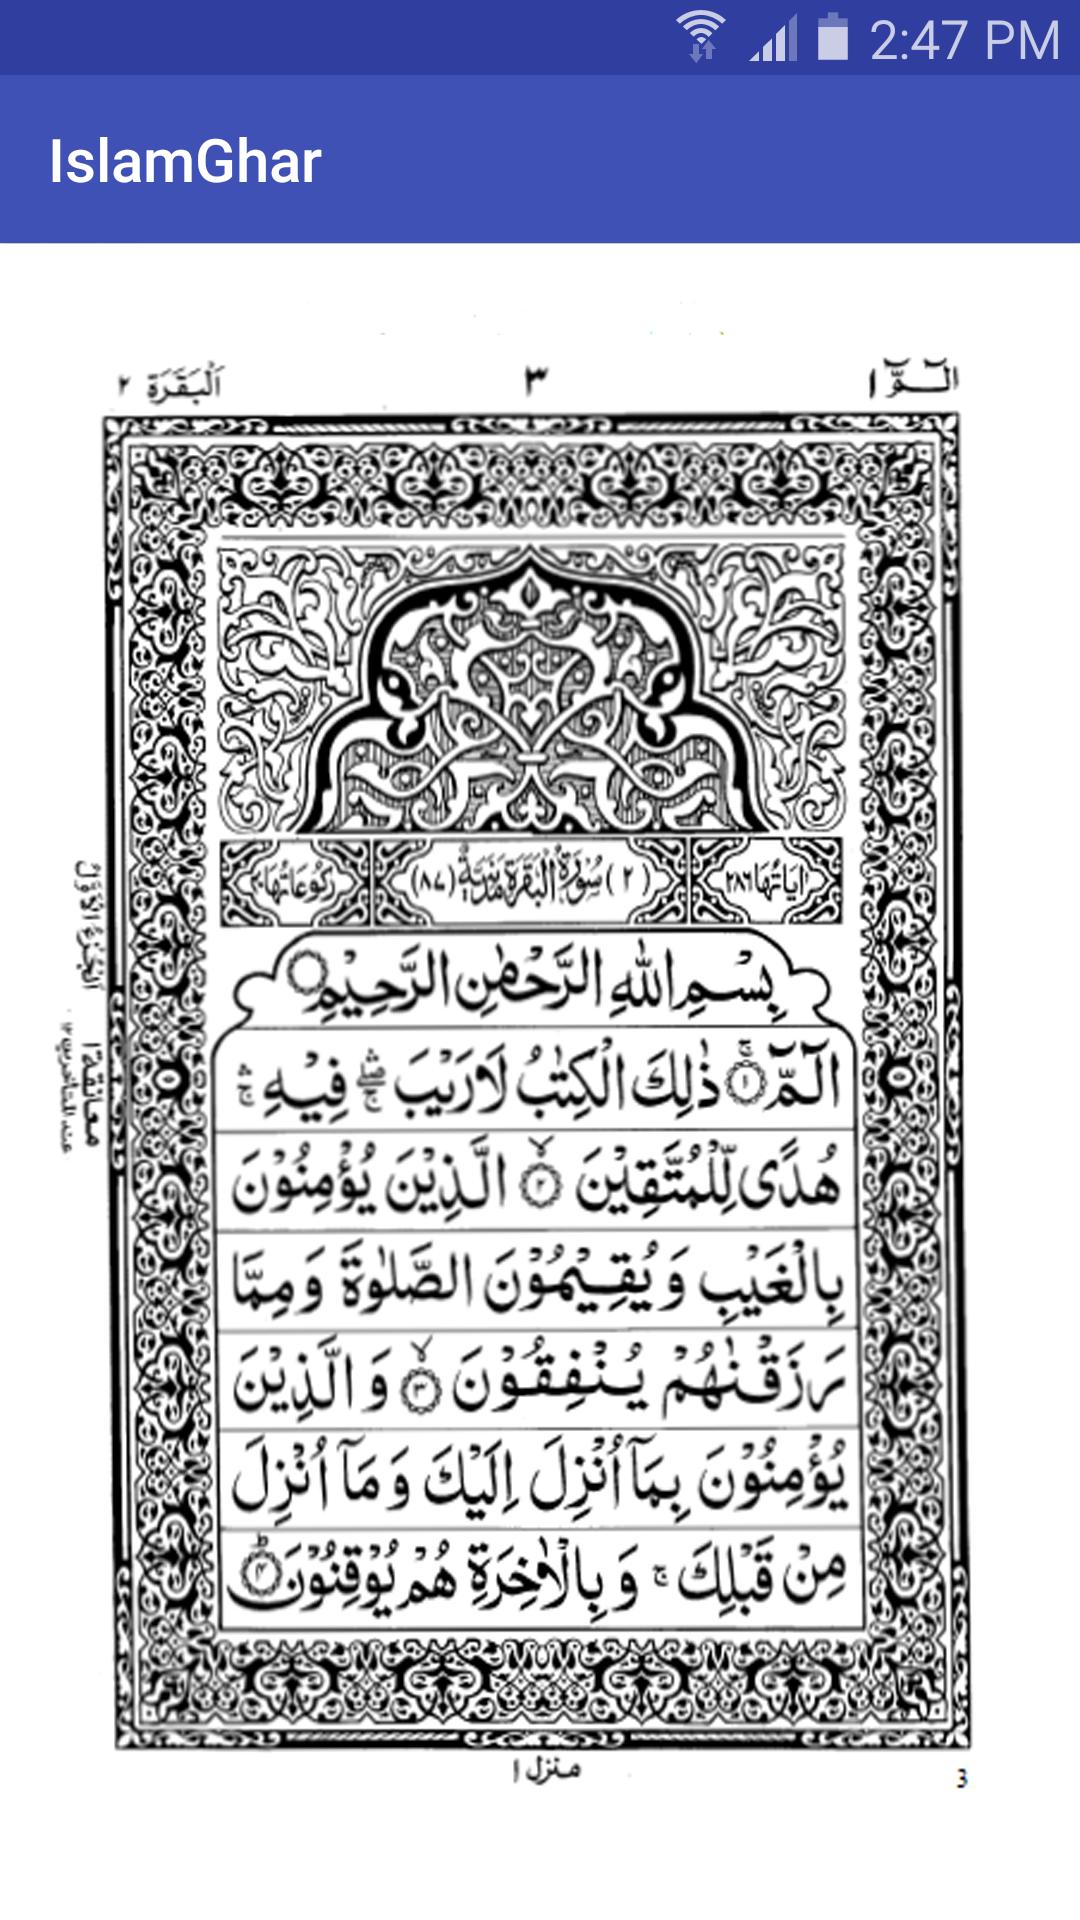 2:47 PM
IslamGhar
الٓـمّٓ ١
٣
اَلْبَقَرَة ٢
اٰيَاتُهَا ٢٨٦
(٢) سُوْرَةُ الْبَقَرَةِ مَدَنِيَّةٌ (٨٧)
رُكُوْعَاتُهَا ٤٠
بِسْمِ اللّٰهِ الرَّحْمٰنِ الرَّحِيْمِ
الٓمّٓ ۚ ١ ذٰلِكَ الْكِتٰبُ لَا رَيْبَ ۛۖۚ فِيْهِ ۛۚ
هُدًى لِّلْمُتَّقِيْنَ ۙ ٢ الَّذِيْنَ يُؤْمِنُوْنَ
بِالْغَيْبِ وَ يُقِيْمُوْنَ الصَّلٰوةَ وَ مِمَّا
رَزَقْنٰهُمْ يُنْفِقُوْنَ ۙ ٣ وَ الَّذِيْنَ
يُؤْمِنُوْنَ بِمَاۤ اُنْزِلَ اِلَيْكَ وَ مَاۤ اُنْزِلَ
مِنْ قَبْلِكَ ۚ وَ بِالْاٰخِرَةِ هُمْ يُوْقِنُوْنَ ؕ ٤
اَلْجُزْءُ الْاَوَّلُ
معانقة ١
عند المتاخرين ١٢
منزل ١
3